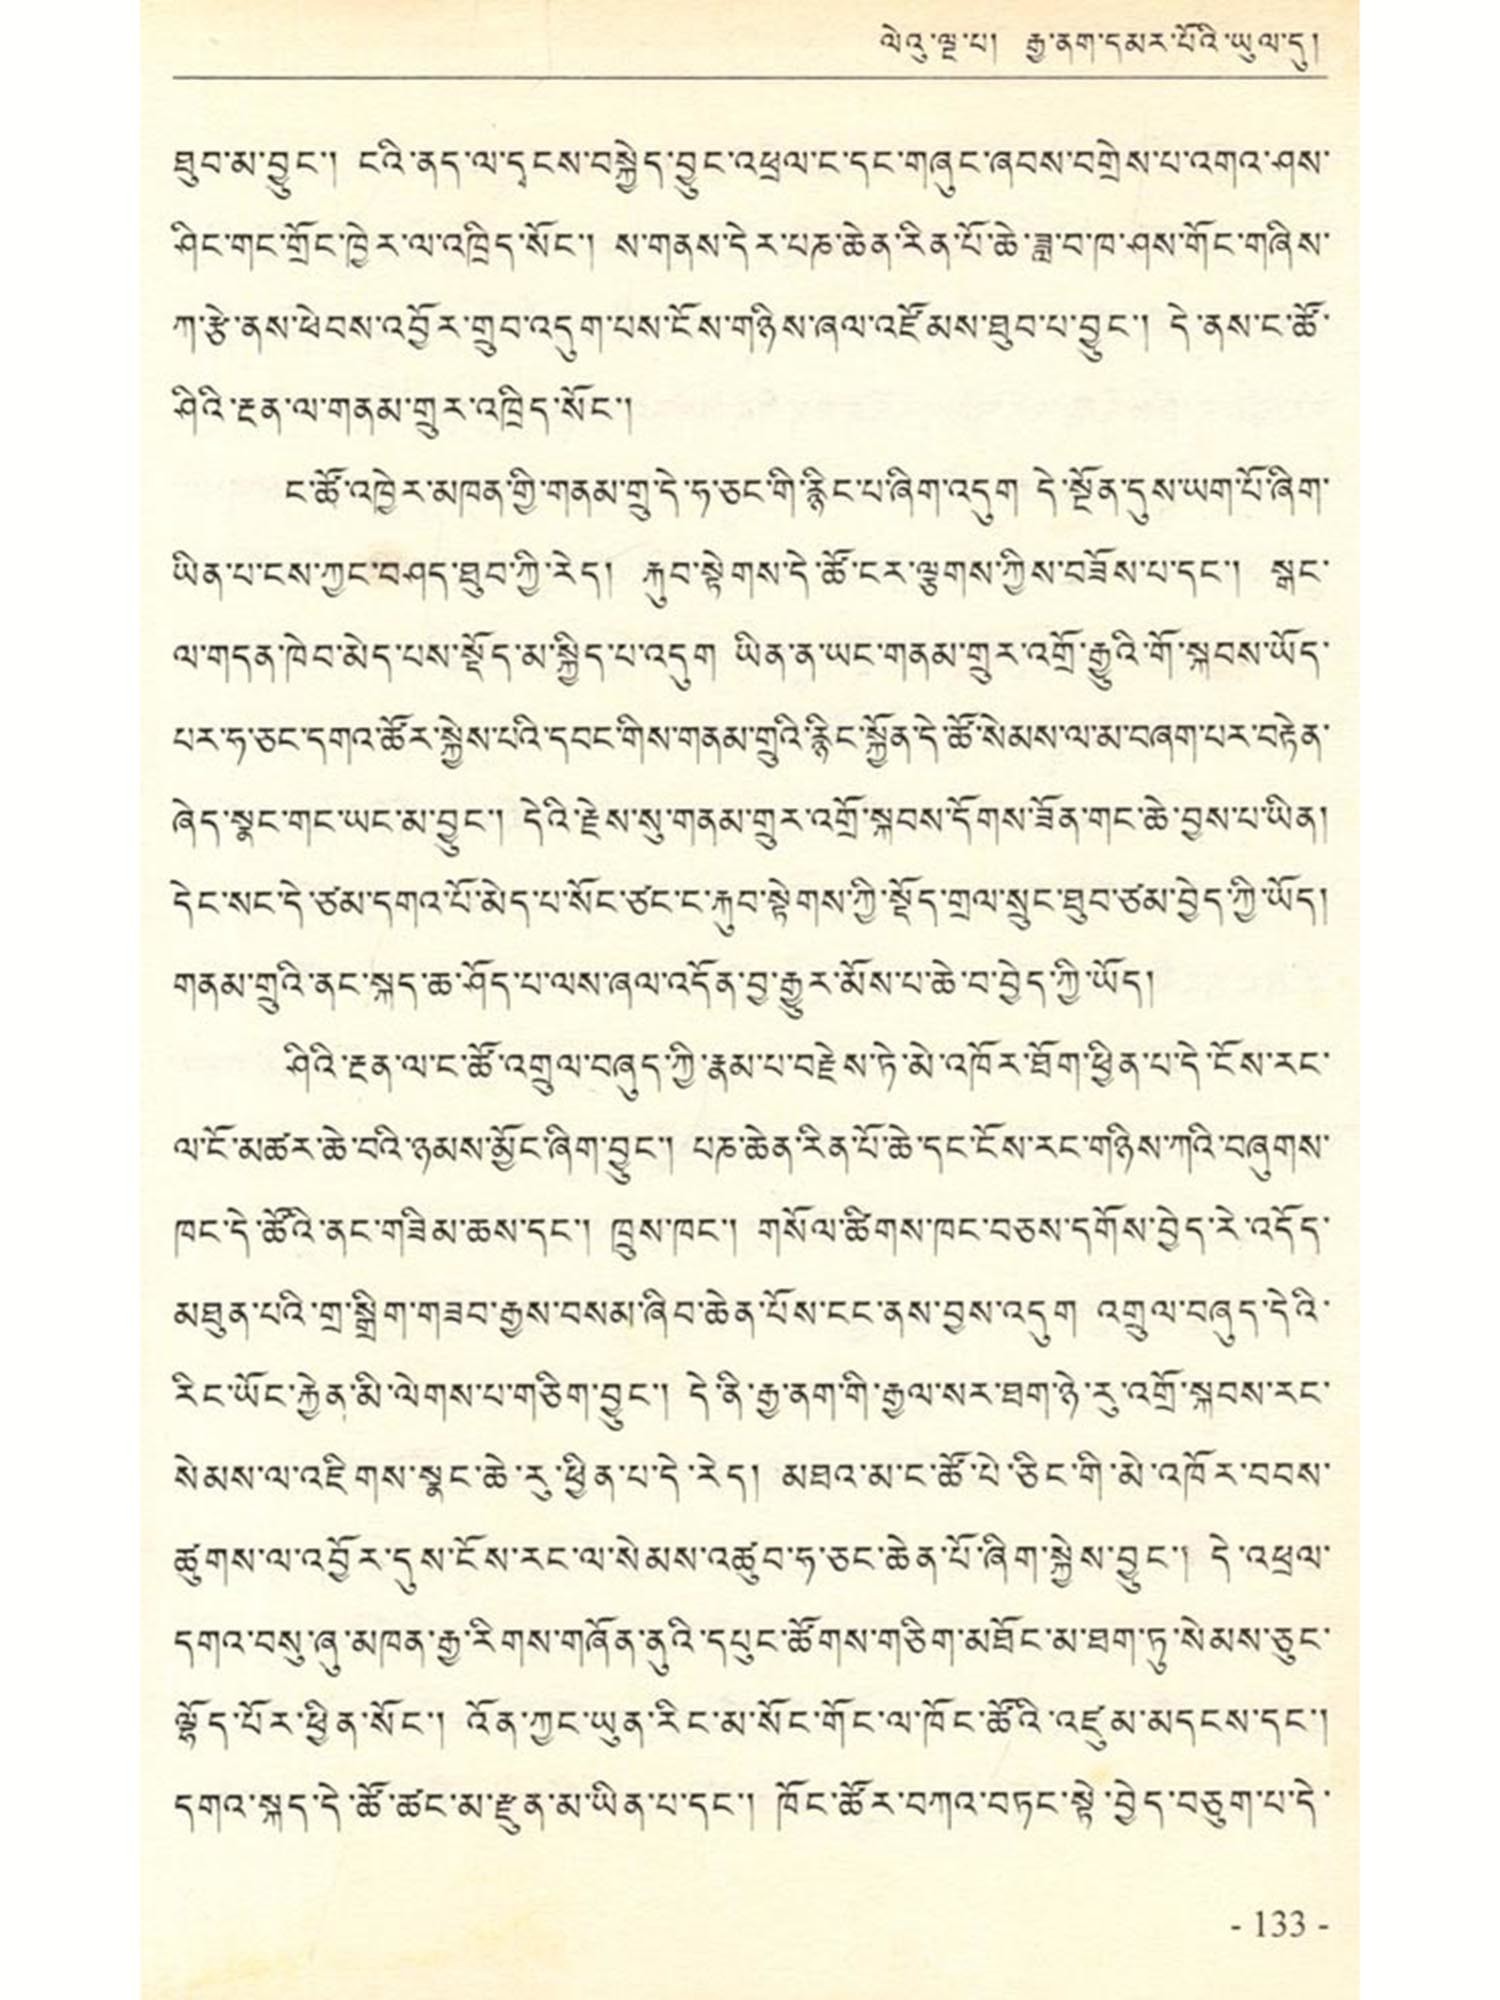 ལེའུ་ལྔ་པ། རྒྱ་ནག་དམར་པོའི་ཡུལ་དུ།
ཐུབ་མ་བྱུང་། ངའི་ནད་ལ་དྭངས་བསྐྱེད་བྱུང་འཕྲལ་ང་དང་གཞུང་ཞབས་བགྲེས་པ་འགའ་ཤས་
ཤིང་གང་གྲོང་ཁྱེར་ལ་འཁྲིད་སོང་། ས་གནས་དེར་པཎ་ཆེན་རིན་པོ་ཆེ་ཟླ་བ་ཁ་ཤས་གོང་གཞིས་
ཀ་རྩེ་ནས་ཕེབས་འབྱོར་གྲུབ་འདུག་པས་ངོས་གཉིས་ཞལ་འཛོམས་ཐུབ་པ་བྱུང་། དེ་ནས་ང་ཚོ་
ཤིའི་རྔན་ལ་གནམ་གྲུར་འཁྲིད་སོང་།
ང་ཚོ་འཁྱེར་མཁན་གྱི་གནམ་གྲུ་དེ་ཧ་ཅང་གི་རྙིང་པ་ཞིག་འདུག དེ་སྔོན་དུས་ཡག་པོ་ཞིག་
ཡིན་པ་ངས་ཀྱང་བཤད་ཐུབ་ཀྱི་རེད། རྐུབ་སྟེགས་དེ་ཚོ་ངར་ལྕགས་ཀྱིས་བཟོས་པ་དང་། སྒང་
ལ་གདན་ཁེབ་མེད་པས་སྡོད་མ་སྐྱིད་པ་འདུག ཡིན་ན་ཡང་གནམ་གྲུར་འགྲོ་རྒྱུའི་གོ་སྐབས་ཡོད་
པར་ཧ་ཅང་དགའ་ཚོར་སྐྱེས་པའི་དབང་གིས་གནམ་གྲུའི་རྙིང་སྐྱོན་དེ་ཚོ་སེམས་ལ་མ་བཞག་པར་བརྟེན་
ཞེད་སྣང་གང་ཡང་མ་བྱུང་། དེའི་རྗེས་སུ་གནམ་གྲུར་འགྲོ་སྐབས་དོགས་ཟོན་གང་ཆེ་བྱས་པ་ཡིན།
དེང་སང་དེ་ཙམ་དགའ་པོ་མེད་པ་སོང་ཙང་ང་རྐུབ་སྟེགས་ཀྱི་སྡོད་གྲལ་སྲུང་ཐུབ་ཙམ་བྱེད་ཀྱི་ཡོད།
གནམ་གྲུའི་ནང་སྐད་ཆ་ཤོད་པ་ལས་ཞལ་འདོན་བྱ་རྒྱུར་མོས་པ་ཆེ་བ་བྱེད་ཀྱི་ཡོད།
ཤིའི་རྔན་ལ་ང་ཚོ་འགྲུལ་བཞུད་ཀྱི་རྣམ་པ་བརྗེས་ཏེ་མེ་འཁོར་ཐོག་ཕྱིན་པ་དེ་ངོས་རང་
ལ་ངོ་མཚར་ཆེ་བའི་ཉམས་མྱོང་ཞིག་བྱུང་། པཎ་ཆེན་རིན་པོ་ཆེ་དང་ངོས་རང་གཉིས་ཀའི་བཞུགས་
ཁང་དེ་ཚོའི་ནང་གཟིམ་ཆས་དང་། ཁྲུས་ཁང་། གསོལ་ཚིགས་ཁང་བཅས་དགོས་བྱེད་རེ་འདོད་
མཐུན་པའི་གྲ་སྒྲིག་གཟབ་རྒྱས་བསམ་ཞིབ་ཆེན་པོས་ངང་ནས་བྱས་འདུག འགྲུལ་བཞུད་དེའི་
རིང་ཡོང་རྐྱེན་མི་ལེགས་པ་གཅིག་བྱུང་། དེ་ནི་རྒྱ་ནག་གི་རྒྱལ་སར་ཐག་ཉེ་རུ་འགྲོ་སྐབས་རང་
སེམས་ལ་འཇིགས་སྣང་ཆེ་རུ་ཕྱིན་པ་དེ་རེད། མཐའ་མ་ང་ཚོ་པེ་ཅིང་གི་མེ་འཁོར་བབས་
ཚུགས་ལ་འབྱོར་དུས་ངོས་རང་ལ་སེམས་འཚུབ་ཧ་ཅང་ཆེན་པོ་ཞིག་སྐྱེས་བྱུང་། དེ་འཕྲལ་
དགའ་བསུ་ཞུ་མཁན་རྒྱ་རིགས་གཞོན་ནུའི་དཔུང་ཚོགས་གཅིག་མཐོང་མ་ཐག་ཏུ་སེམས་ཅུང་
ལྷོད་པོར་ཕྱིན་སོང་། འོན་ཀྱང་ཡུན་རིང་མ་སོང་གོང་ལ་ཁོང་ཚོའི་འཛུམ་མདངས་དང་།
དགའ་སྐད་དེ་ཚོ་ཚང་མ་རྫུན་མ་ཡིན་པ་དང་། ཁོང་ཚོར་བཀའ་བཏང་སྟེ་བྱེད་བཅུག་པ་དེ་
- 133 -